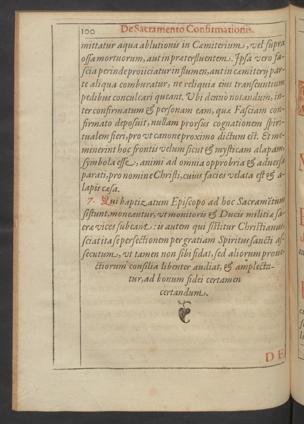 100 De Sacramento Confirmationis.
mittatur aqua ablutionis in Cœmiterium, vel supra
ossa mortuorum, aut in præterfluentem. Ipsa vero fascia
perinde proijciatur in flumen, aut in cœmiterij parte
aliqua comburatur, ne reliquiæ eius transeuntium
pedibus conculcari queant. Ubi demū notandum, inter
confirmatum & personam eam, quæ Fasciam confirmato
deposuit, nullam prorsus cognationem spiritualem
fieri, pro vt canone proximo dictum est. Et meminerint
hoc frontis velum sicut & mysticam alapam
symbola esse, animi ad omnia opprobria & aduersa
parati, pro nomine Christi, cuius facies velata est & alapis
cæsa.
7. Qui baptizatum Episcopo ad hoc Sacramētum
sistunt, moneantur, vt monitoris & Ducis militiæ sacræ
vices subeant: is autem qui sistitur Christianus
sciat ita se perfectionem per gratiam Spiritus sancti assecutum,
vt tamen non sibi fidat, sed aliorum prouectiorum
consilia libenter audiat, & amplectatur,
ad bonum fidei certamen
certandum.
DE